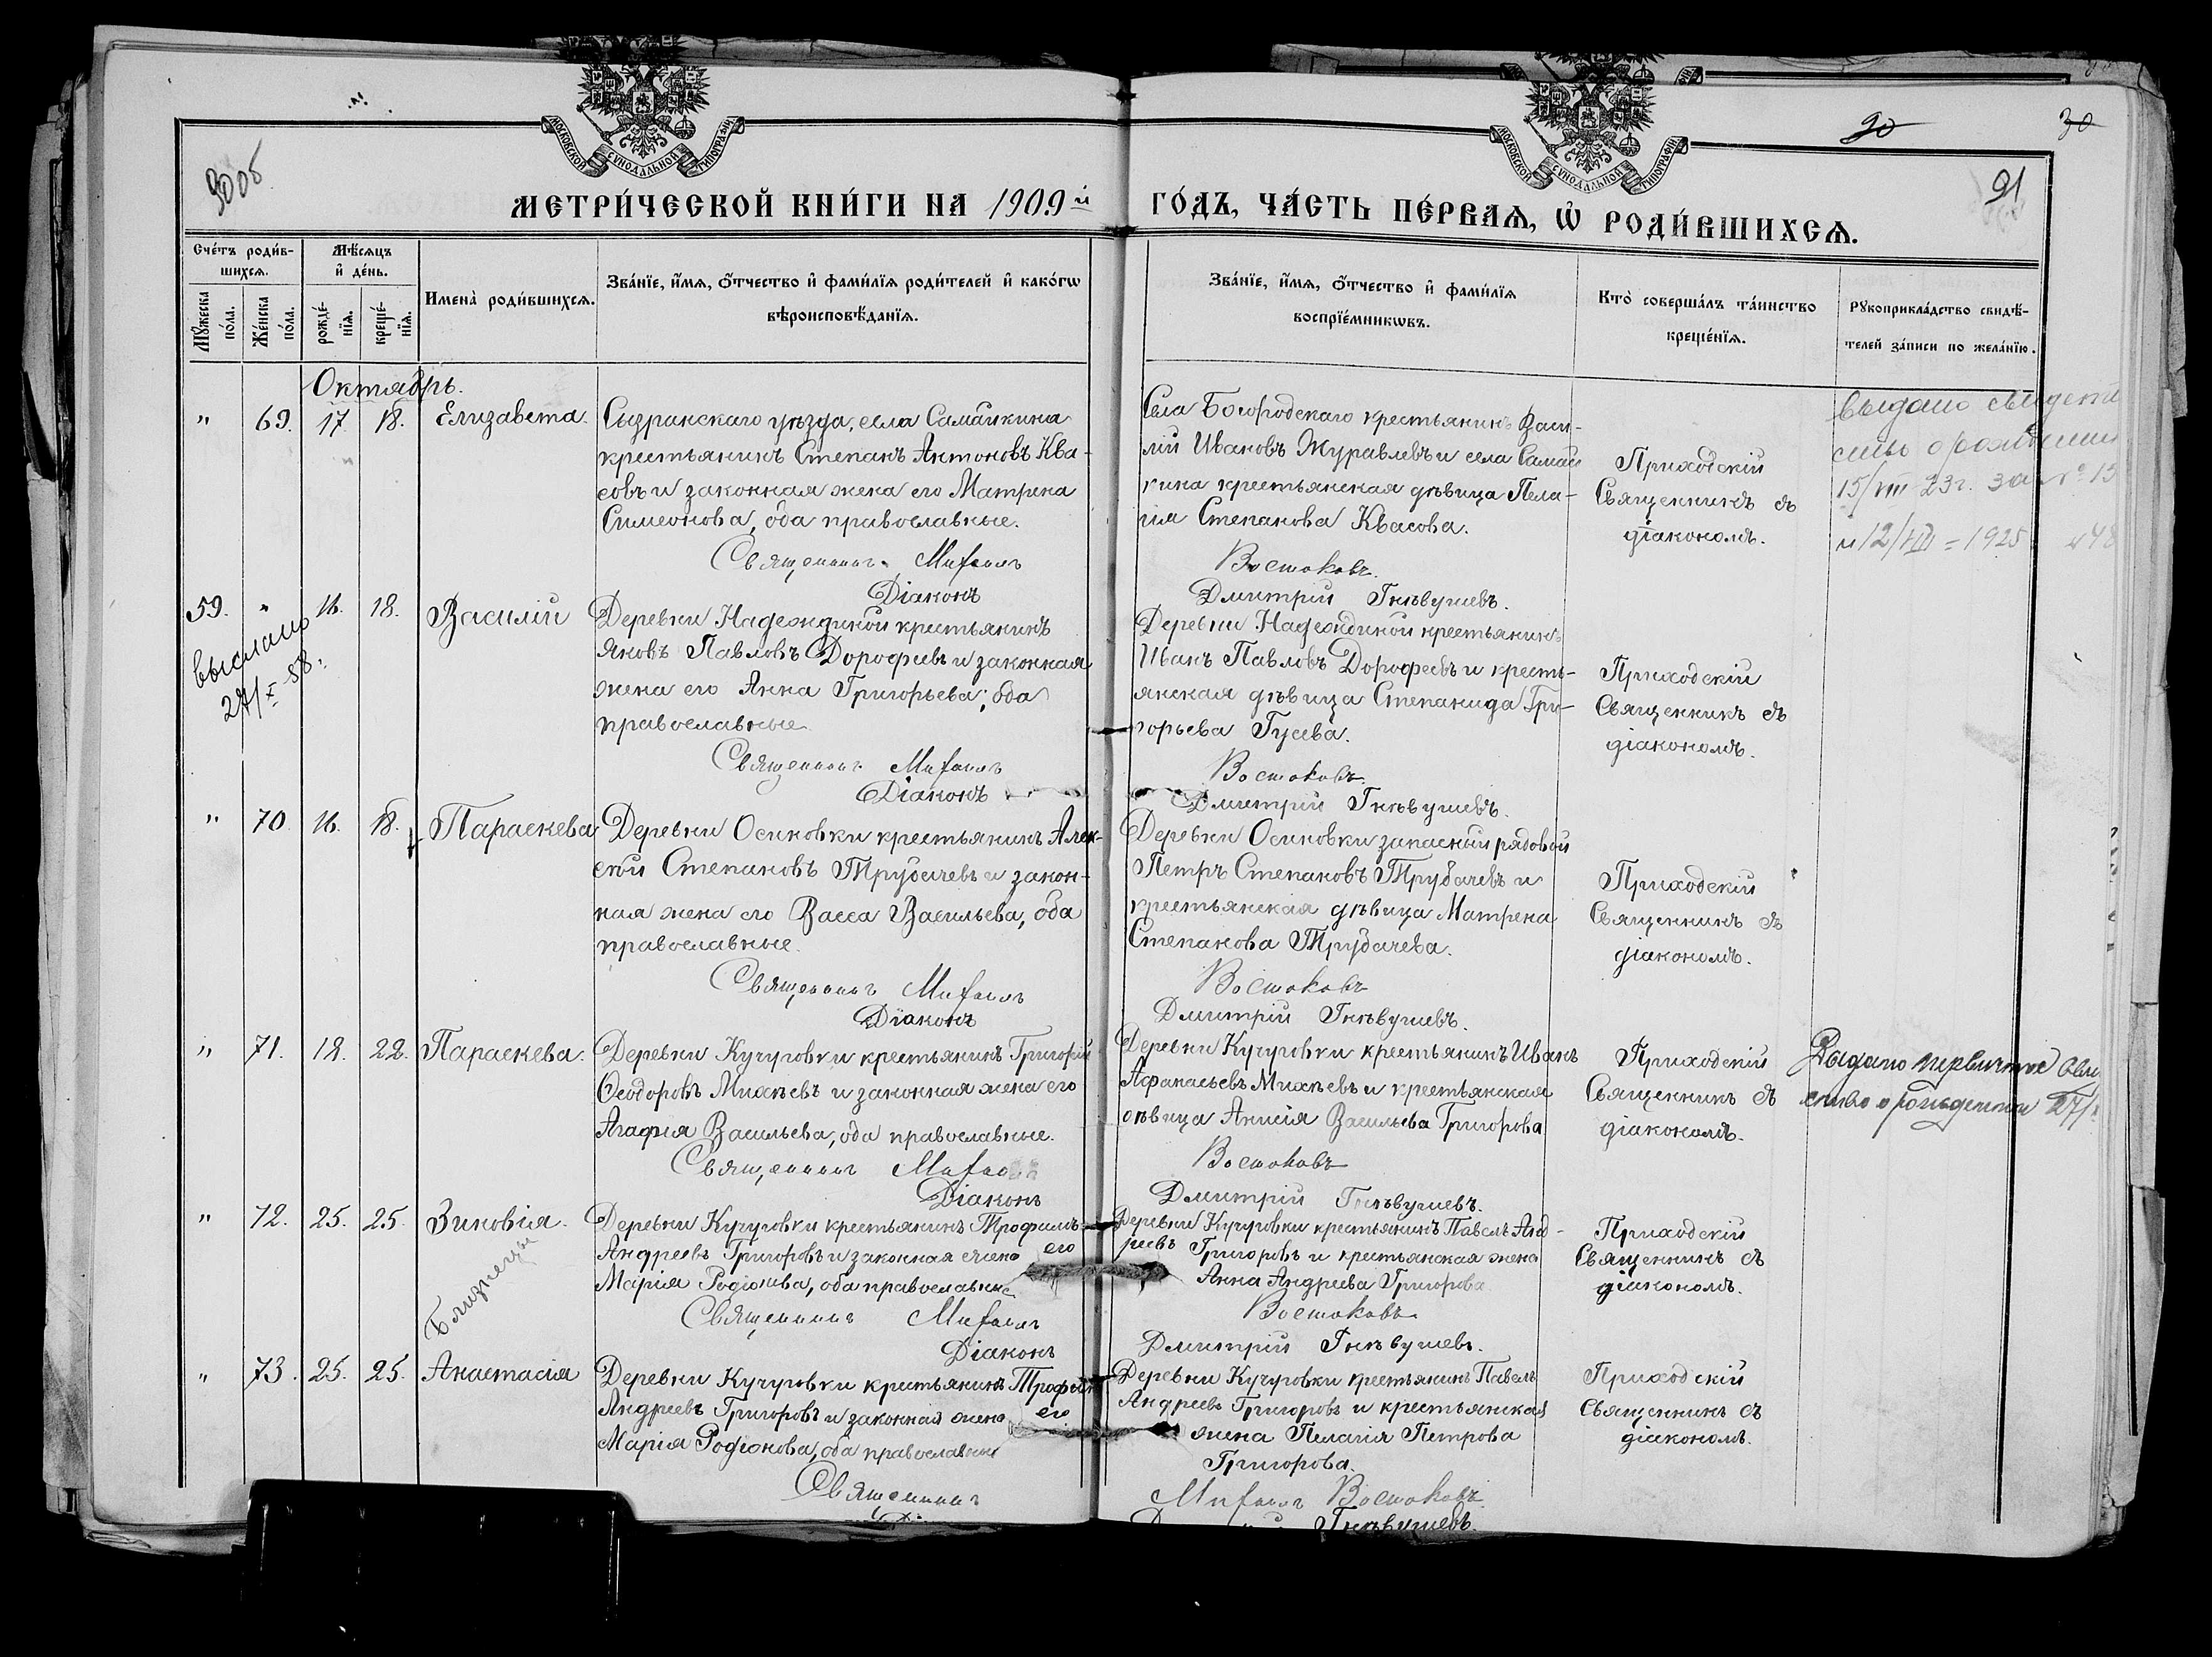 МОСКОВСКОЙ СѴНОДАЛЬНОЙ ТИПОГРАФІИ
МОСКОВСКОЙ СѴНОДАЛЬНОЙ ТИПОГРАФІИ
90
30
90об
91
МЕТРИ́ЧЕСКОЙ КНИ́ГИ НА 1909й
ГО́ДЪ, ЧА́СТЬ ПЕ́РВАѦ, Ѡ҆ РОДИ́ВШИХСѦ.
Сче́тъ роди́в-
шихсѧ.
Мѣ́сѧцъ
и҆ де́нь.
Мꙋ́жеска
по́ла.
Же́нска
по́ла.
рожде́-
нїѧ.
креще́-
нїѧ.
Имена̀ роди́вшихсѧ.
Зва́нїе, и҆́мѧ, ѻ҆́тчество и҆ фами́лїѧ роди́телей и҆ како́гѡ
вѣроисповѣ́данїѧ.
Зва́нїе, и҆́мѧ, ѻ҆́тчество и҆ фами́лїѧ
воспрїе́мникѡвъ.
Кто̀ соверша́лъ та́инство
креще́нїѧ.
Рꙋкоприкла́дство свидѣ́-
телей за́писи по жела́нїю.
Октябрь.
" 69. 17. 18. Елизавета.
Сызранскаго уѣзда, села Самайкина
крестьянинъ Степанъ Антоновъ Ква-
совъ и законная жена его Матрена
Симеонова, оба православные.
Священникъ Михаилъ
Діаконъ
Села Богородскаго крестьянинъ Васи-
лій Ивановъ Журавлевъ и села Самай
кина крестьянская дѣвица Пела-
гія Степанова Квасова.
Востоковъ.
Дмитрій Гнѣвушевъ.
Приходскій
Священникъ съ
діакономъ.
выдано свидет
ство о рождении
15/VIII 23 г. за № 15
и 12/VIII = 1925 № 48
59. " 16. 18. Василій
выслано
27/X-58.
Деревни Надеждиной крестьянинъ
Яковъ Павловъ Дорофеевъ и законная
жена его Анна Григорьева; оба
православные
Священникъ Михаилъ
Діаконъ
Деревни Надеждиной крестьянинъ
Иванъ Павловъ Дорофеевъ и кресть-
янская дѣвица Степанида Гри-
горьева Гусева.
Востоковъ.
Дмитрій Гнѣвушевъ.
Приходскій
Священникъ съ
діакономъ.
" 70 16. 18. Параскева
Деревни Осиновки крестьянинъ Алек-
сѣй Степановъ Трубачевъ и закон-
ная жена его Васса Васильева, оба
православные.
Священникъ Михаилъ
Діаконъ
Деревни Осиновки запасный рядовой
Петръ Степановъ Трубачевъ и
крестьянская дѣвица Матрена
Степанова Трубачева.
Востоковъ
Дмитрій Гнѣвушевъ.
Приходскій
Священникъ съ
діакономъ.
" 71. 12. 22. Параскева.
Деревни Кучуровки крестьянинъ Григорій
Ѳеодоровъ Михѣевъ и законная жена его
Агафія Васильева, оба православные.
Священникъ Михаилъ
Діаконъ
Деревни Кучуровки крестьянинъ Иванъ
Афанасьевъ Михѣевъ и крестьянская
дѣвица Анисія Васильева Григорова
Востоковъ
Дмитрій Гнѣвушевъ.
Приходскій
Священникъ съ
діакономъ.
Выдано первичное сви
ство о рождении 27/
" 72. 25. 25. Зиновія.
Близнецы
Деревни Кучуровки крестьянинъ Трофимъ
Андреевъ Григоровъ и законная жена его
Марія Родіонова, оба православные
Священникъ Михаилъ
Діаконъ
Деревни Кучуровки крестьянинъ Павелъ Анд-
реевъ Григоровъ и крестьянская жена
Анна Андреева Григорова
Востоковъ
Дмитрій Гнѣвушевъ.
Приходскій
Священникъ съ
діакономъ.
" 73. 25. 25. Анастасія
Деревни Кучуровки крестьянинъ Трофимъ
Андреевъ Григоровъ и законная жена его
Марія Родіонова, оба православные
Священникъ
Деревни Кучуровки крестьянинъ Павелъ
Андреевъ Григоровъ и крестьянская
жена Пелагія Петрова
Григорова.
Михаилъ Востоковъ.
Гнѣвушевъ.
Приходскій
Священникъ съ
діакономъ.